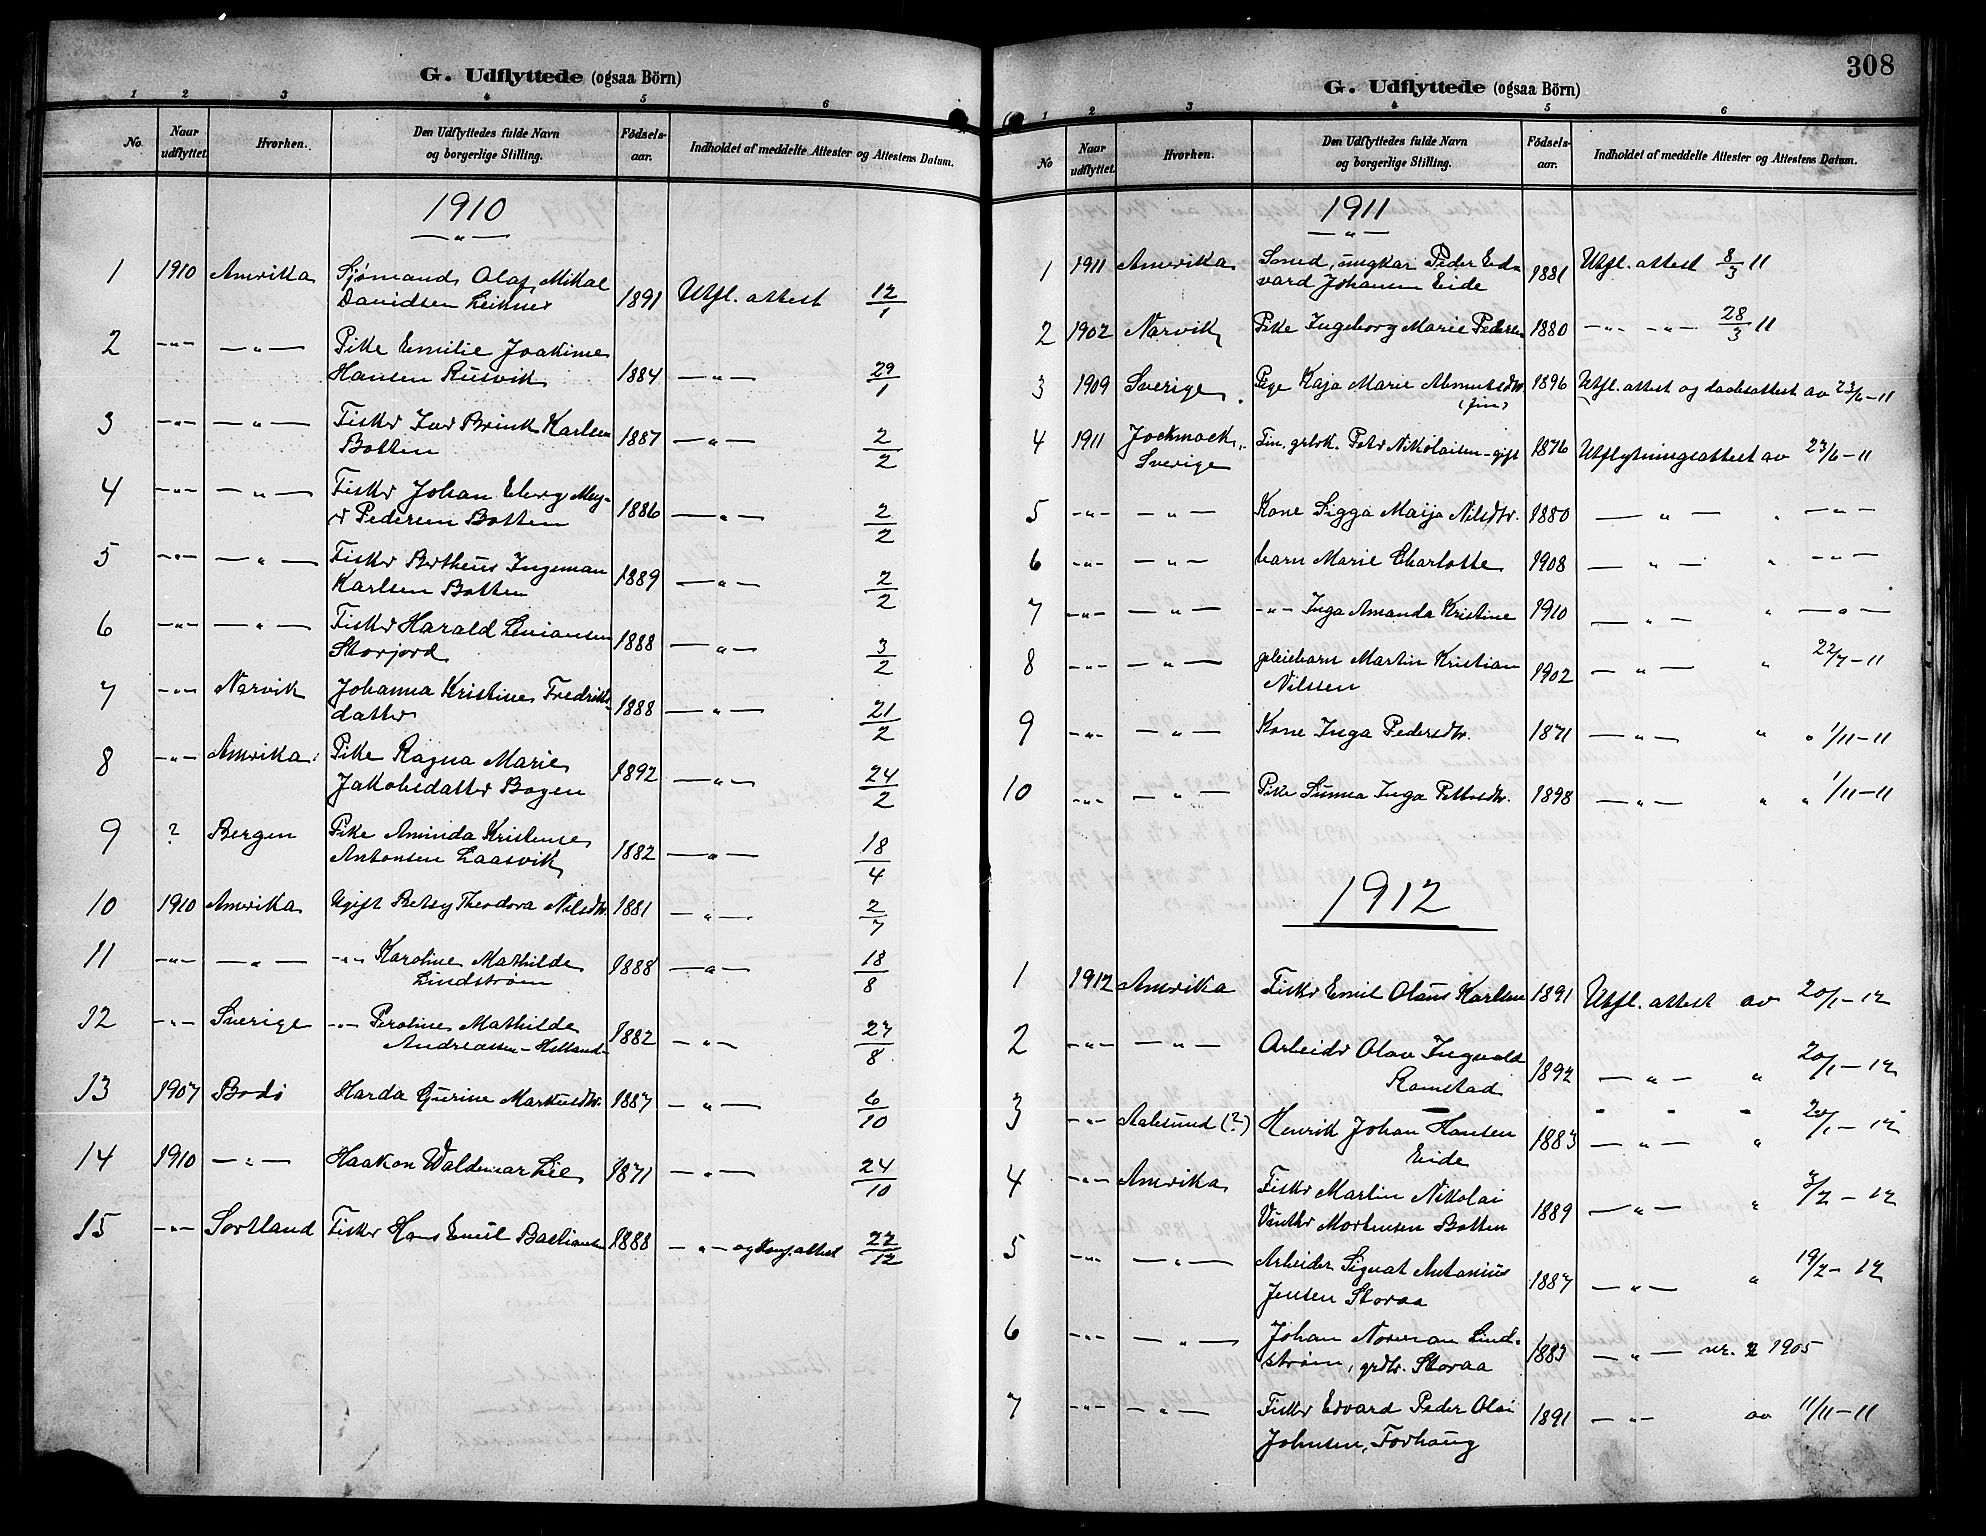 G. Udflyttede (ogsaa Börn)
1 2 3 4 5 6
No. Naar udflyttet. Hvorhen. Den Udflyttedes fulde Navn og borgerlige Stilling. Födsels-aar. Indholdet af meddelte Attester og Attestens Datum.
1910
—"—
1 1910 Amerika Sjømand Olaf Mikal
Davidsen Leiknes 1891 Utfl. attest 12/1
2 -"- —"— Pike Emilie Joakime
Hansen Rusvik 1884 —"— 29/1
3 -"- —"— Fisker Ivar Brink Karlsen
Botten 1887 —"— 2/2
4 -"- —"— Fisker Johan Eberg Mey-
er Pedersen Botten 1886 —"— 2/2
5 -"- —"— Fisker Bertheus Ingeman
Karlsen Botten 1889 —"— 2/2
6 -"- —"— Fisker Harald Leviansen
Storjord 1888 —"— 3/2
7 -"- Narvik Johanna Kristine Fredriks-
datter 1888 —"— 21/2
8 -"- Amerika Pike Ragna Marie
Jakobsdatter Bogen 1892 —"— 24/2
9 ? Bergen Pike Aminda Kristense
Antonsen Laasvik 1882 —"— 18/4
10 1910 Amerika Ugift Betsy Theodora Nilsdtr. 1881 —"— 2/7
11 -"- —"— -"- Karoline Mathilde
Lindstrøm 1888 —"— 18/8
12 -"- Sverige -"- Peroline Mathilde
Andreassen - Helland- 1882 —"— 27/8
13 1907 Bodø Harda Gurine Markusdtr. 1887 —"— 6/10
14 1910 —"— Haakon Waldemar Lie 1871 —"— 24/10
15 -"- Sortland Fisker Hans Emil Bastiansen 1888 —"— og konf. attest 22/12
308
G. Udflyttede (ogsaa Börn)
1 2 3 4 5 6
No Naar udflyttet. Hvorhen. Den Udflyttedes fulde Navn og borgerlige Stilling. Födsels-aar. Indholdet af meddelte Attester og Attestens Datum.
1911
—"—
1 1911 Amerika Smed, ungkar Peder Ed-
vard Johansen Eide 1881 Utfl. attest 8/3 11
2 1902 Narvik Pike Ingeborg Marie Pedersen 1880 -"- -"- 28/3 11
3 1909 Sverige Pige Kaja Marie 1896 Utfl. attest og daabsattest av 23/6-11
(fin)
4 1911 Jockmock, Fin, grbrk. Peter Nikolaisen - gift 1876 Utflytningsattest av 23/6-11
Sverige
5 -"- -"- Kone Sigga Maija Nilsdtr. 1880 —"— " -"-
6 -"- -"- barn Marie Charlotte 1908 —"— " -"-
7 -"- -"- -"- Inga Amanda Kristine 1910 —"— " -"-
8 -"- -"- pleiebarn Martin Kristian
Nilssen 1902 —"— " 22/7-11
9 -"- -"- Kone Inga Pedersdtr. 1871 —"— " " 1/11-11
10 -"- -"- Pike Inga 1898 —"— " " 1/11-11
1912
1 1912 Amerika Fisker Emil Olaus Karlsen 1891 Utfl. attest av 20/1-12
2 -"- -"- Arbeider Olav Ingvald
Ramstad 1892 —"— " 20/1-12
3 -"- Aalesund (?) Henrik Johan Hansen
Eide 1883 —"— " 20/1-12
4 -"- Amerika Fisker Martin Nikolai
Vinther Mortensen Botten 1889 —"— " /2-12
5 -"- -"- Arbeider Sigvat Antonius
Jensen Storaa 1887 —"— " 19/2-12
6 -"- -"- Johan Norman Lind-
strøm, grdbr. Storaa 1883 —"— nr. 2 1905
7 -"- -"- Fisker Edvard Peder Olai
Johnsen, Forhaug 1891 —"— av 11/11-11